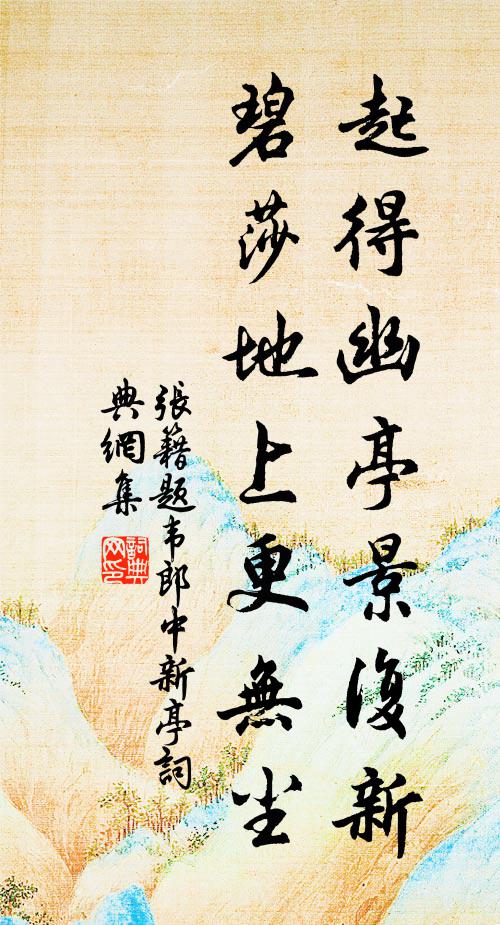 起得幽亭景復新
碧莎地上更無尘
張籍題韦郎中新亭詞
典網集
詞典
网印